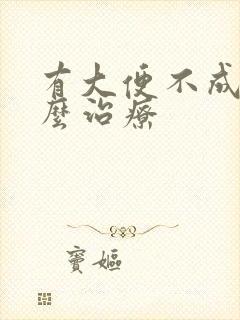 有大便不成
麼治療
竇嫗